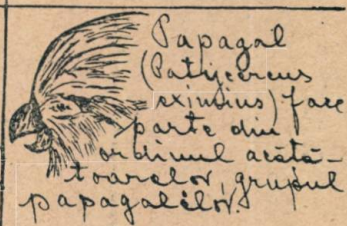 Papagal
(Patijcercus
eximius) face
parte din
ordinul acătă-
toarelor, grupul
papagalilor.